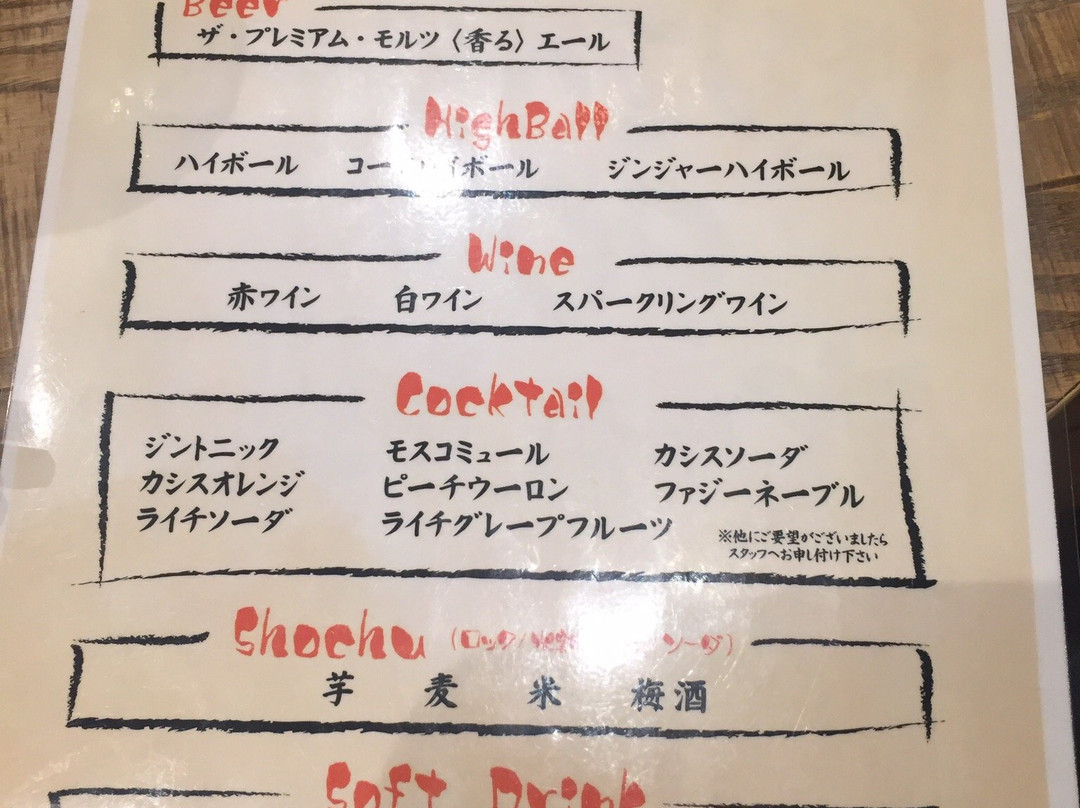 Beer
ザ・プレミアム・モルツ〈香る〉エール
HighBall
ハイボール コー イボール ジンジャーハイボール
Wine
赤ワイン 白ワイン スパークリングワイン
Cocktail
ジントニック モスコミュール カシスソーダ
カシスオレンジ ピーチウーロン ファジーネーブル
ライチソーダ ライチグレープフルーツ
※他にご要望がございましたら
スタッフへお申し付け下さい
Shochu (ロック/ ソーダ)
芋 麦 米 梅酒
Soft Drink